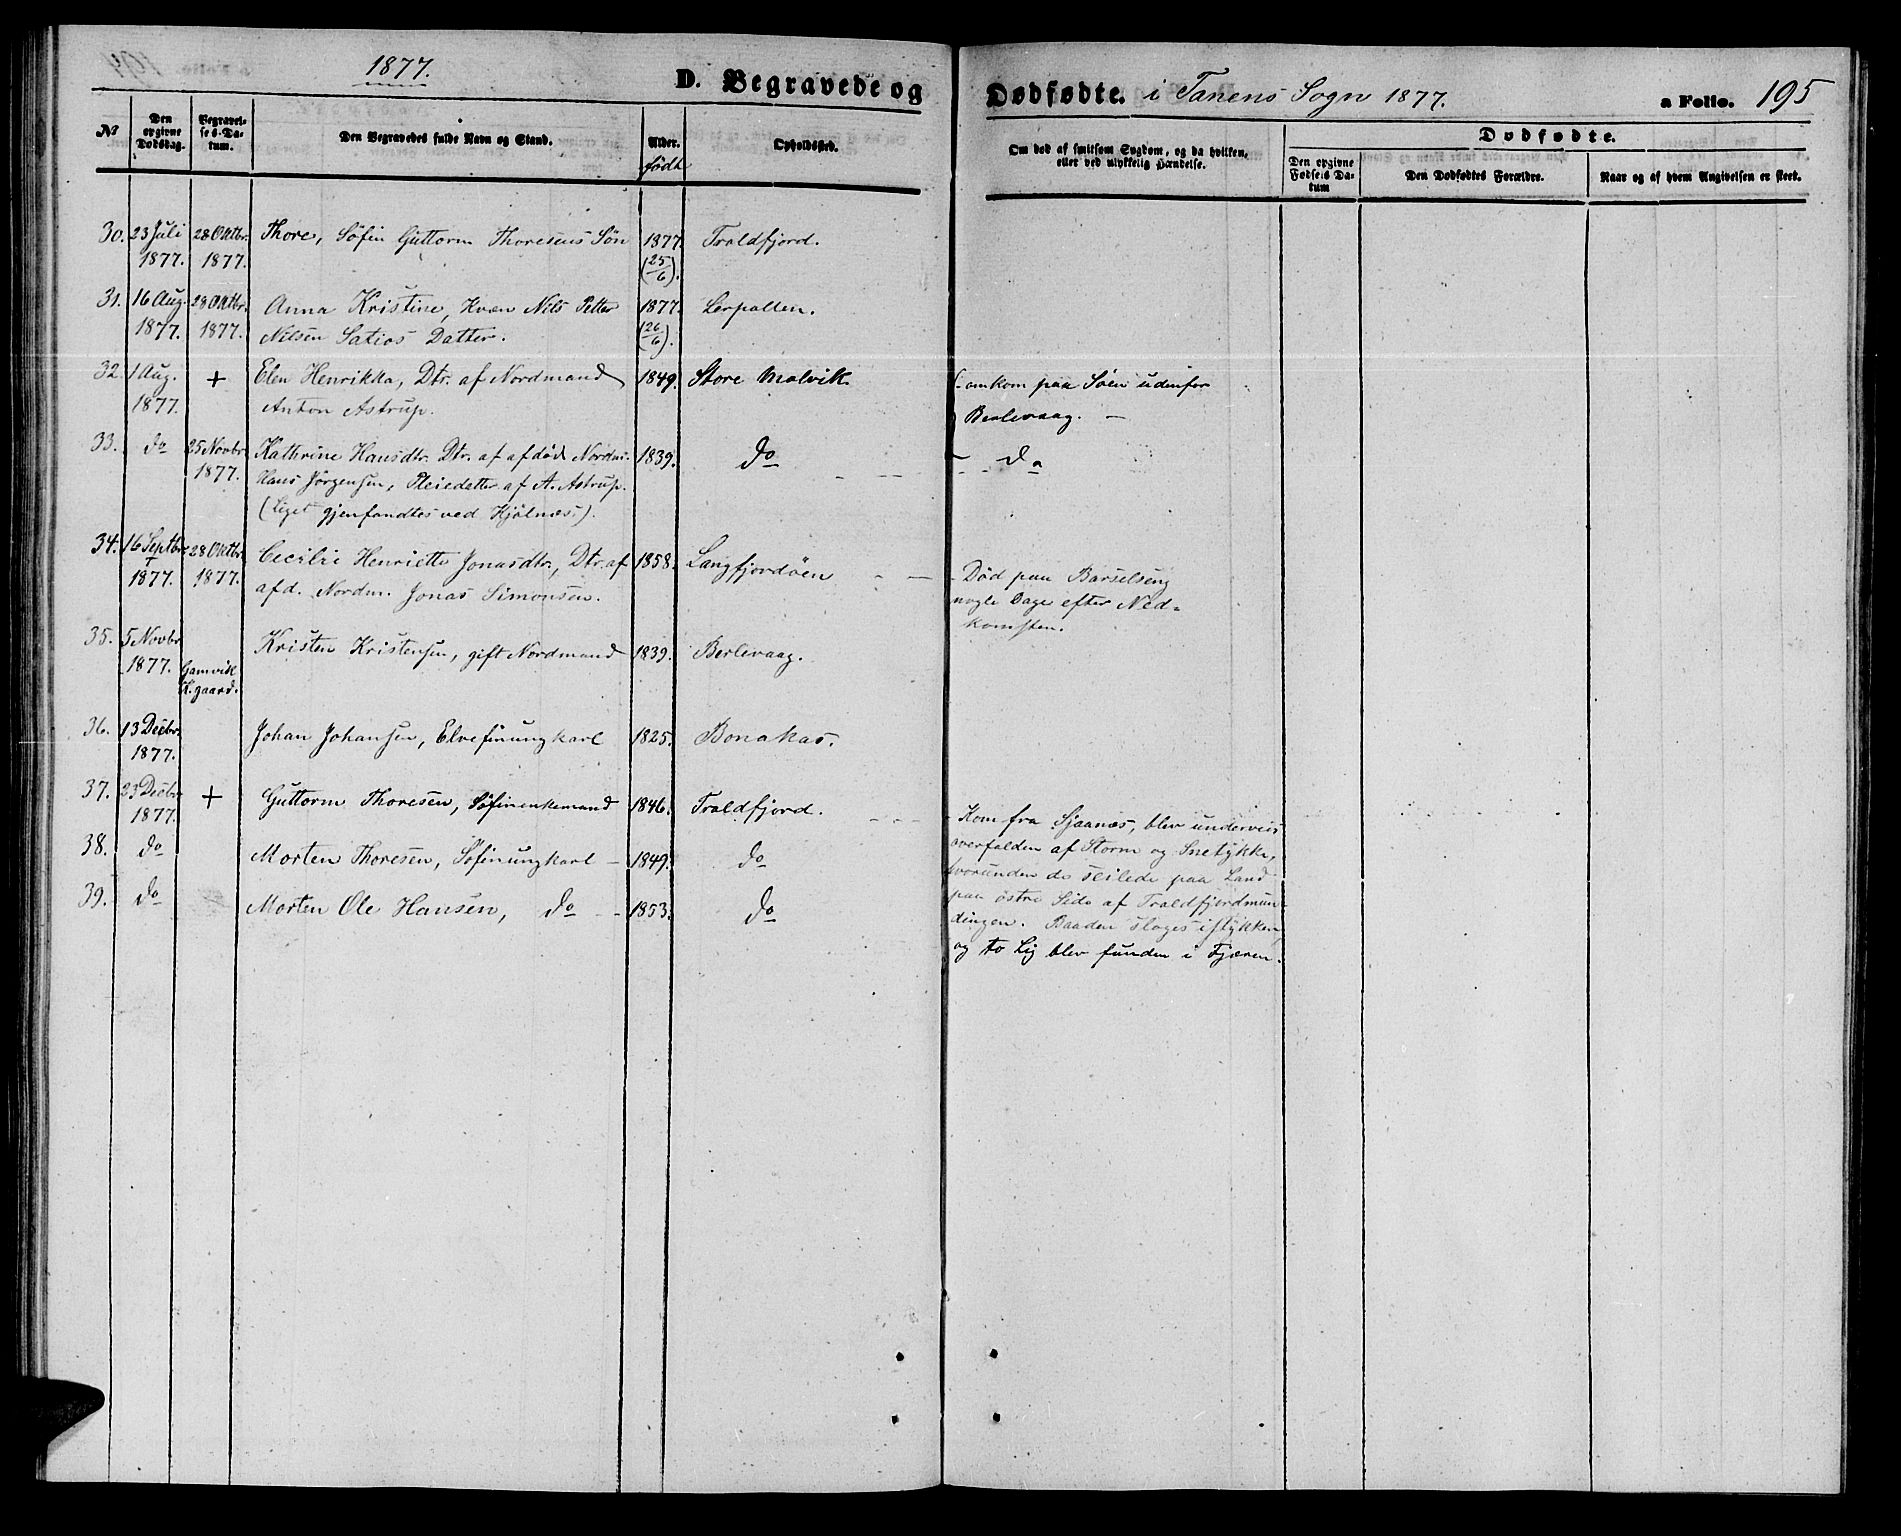 1877.
D. Begravede og
Dødfødte. i Tanens Sogn 1877.
a Folio. 195
No
Den opgivne Dødsdag.
Begravelses-Datum.
Den Begravedes fulde Navn og Stand.
Alder. født
Opholdssted.
Om død af smitsom Sygdom, og da hvilken, eller ved ulykkelig Hændelse.
Dødfødte.
Den opgivne Fødsels Datum
Den Dødfødtes Forældre.
Naar og af hvem Angivelsen er skeet.
30. 23 Juli 28 Oktbr. Thore, Söfin Guttorm Thoresens Søn 1877. Traldfjord.
1877. 1877. (25/6).
31. 16 Aug. 28 Oktbr. Anna Kristine, Kvæn Nils Petter 1877. Lerpollen.
1877. 1877. Nilsen Satios Datter. (26/6).
32. 1 Aug. + Elen Henrikka, Dtr. af Nordmand 1849. Store Molvik. omkom paa Søen udenfor
1877. Anton Astrup. Berlevaag. —
33. do 25 Novbr. Kathrine Hansdtr. Dtr. af afdød Nordm. 1839. do — do
1877. Hans Jörgensen, Pleiedatter af A. Astrup.
(Liget gjenfandtes ved Kjölnæs.).
34. 16 Septbr. 28 Oktbr. Cecilie Henriette Jonasdtr., Dtr. af 1858. Langfjordöen — Død paa Barselseng
1877. 1877. afd. Nordm. Jonas Simonsen. nogle Dage efter Ned=
komsten.
35. 5 Novbr. Kristen Kristensen, gift Nordmand 1839. Berlevaag.
1877. Gamvik
K.gaard.
36. 13 Decbr. Johan Johansen, Elvefinungkarl 1825. Bonakas.
1877.
37. 23 Decbr. + Guttorm Thoresen, Söfinenkemand 1846. Traldfjord. — Kom fra Sjaanæs, blev underveis
1877.
38. do Morten Thoresen, Söfinungkarl — 1849. do overfalden af Storm og Snetykke,
hvorunder de seilede paa Land
39. do Morten Ole Hansen, do — 1853. do paa östre Side af Traldfjordmun-
dingen. Baaden sloges istykker,
og to Lig blev funden i Fjæren.